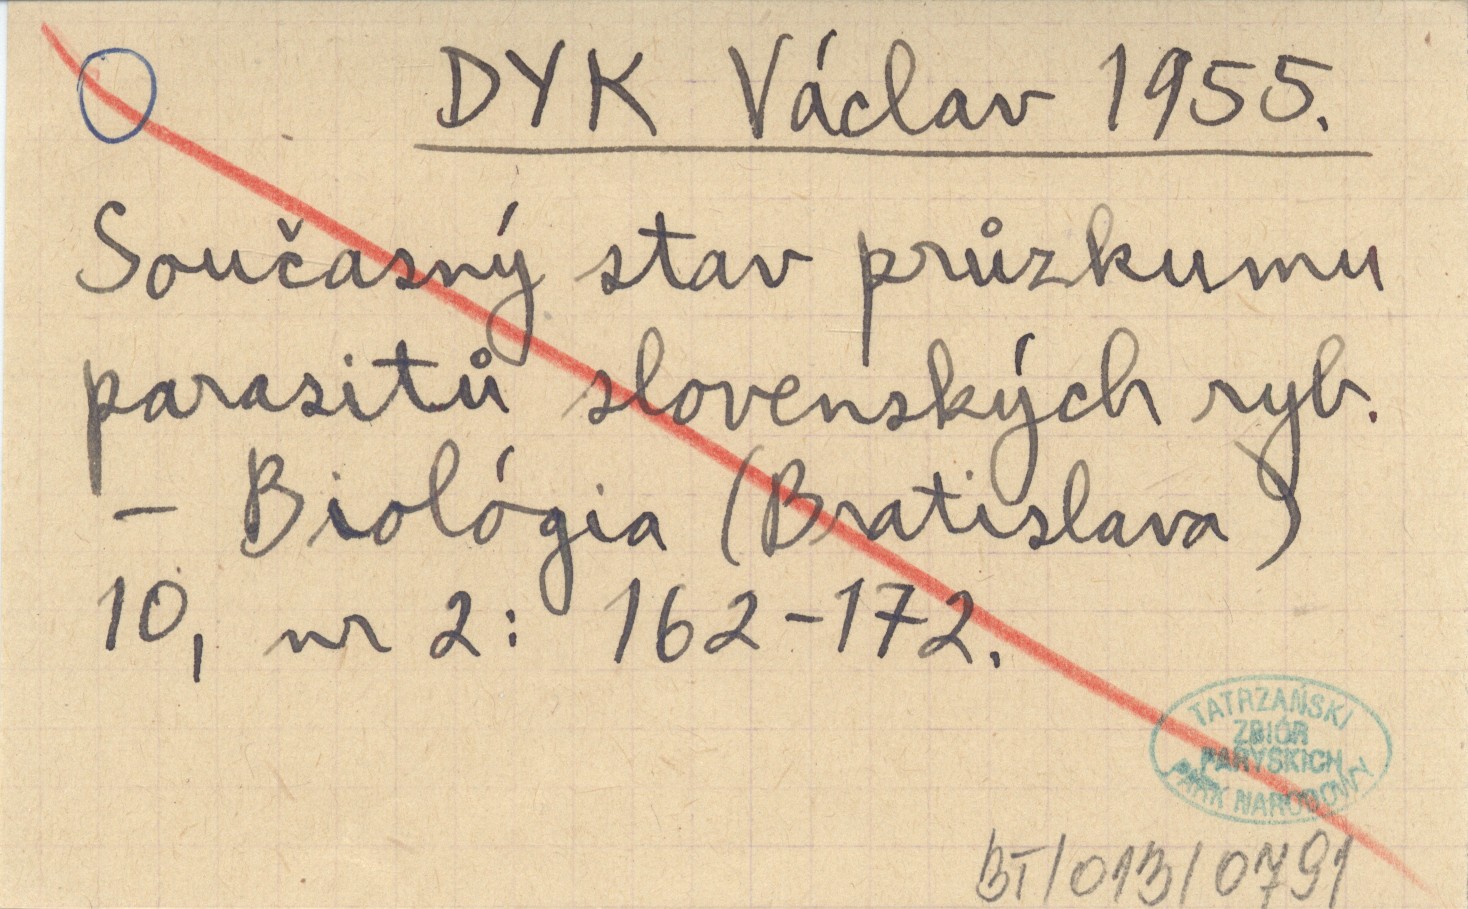 DYK Václav 1955.
Současný stav průzkumu
parasitů slovenských ryb.
- Biológia (Bratislava)
10, nr 2: 162-172.
TATRZAŃSKI
ZBIÓR
PARYSKICH
PARK NARODOWY
BT/013/0791